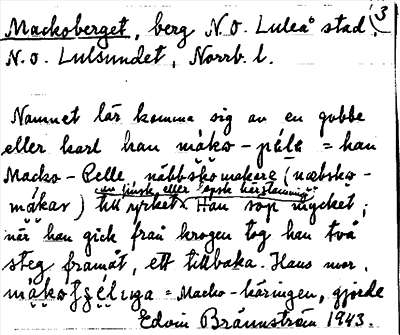 Mackoberget, berg N.O. Luleå stad, 3
N.O. Lulsundet, Norrb. l.
Namnet lär komma sig av en gubbe
eller karl han máko-pélɛ = han
Macko-Pelle näbbskomakare (næbsko-
av finsk eller lapsk härstamning
mákar) till yrket. Han söp mycket;
när han gick från krogen tog han två
steg framåt, ett tillbaka. Hans mor,
= Macko-käringen, gjorde
Edvin Brännström 1943.